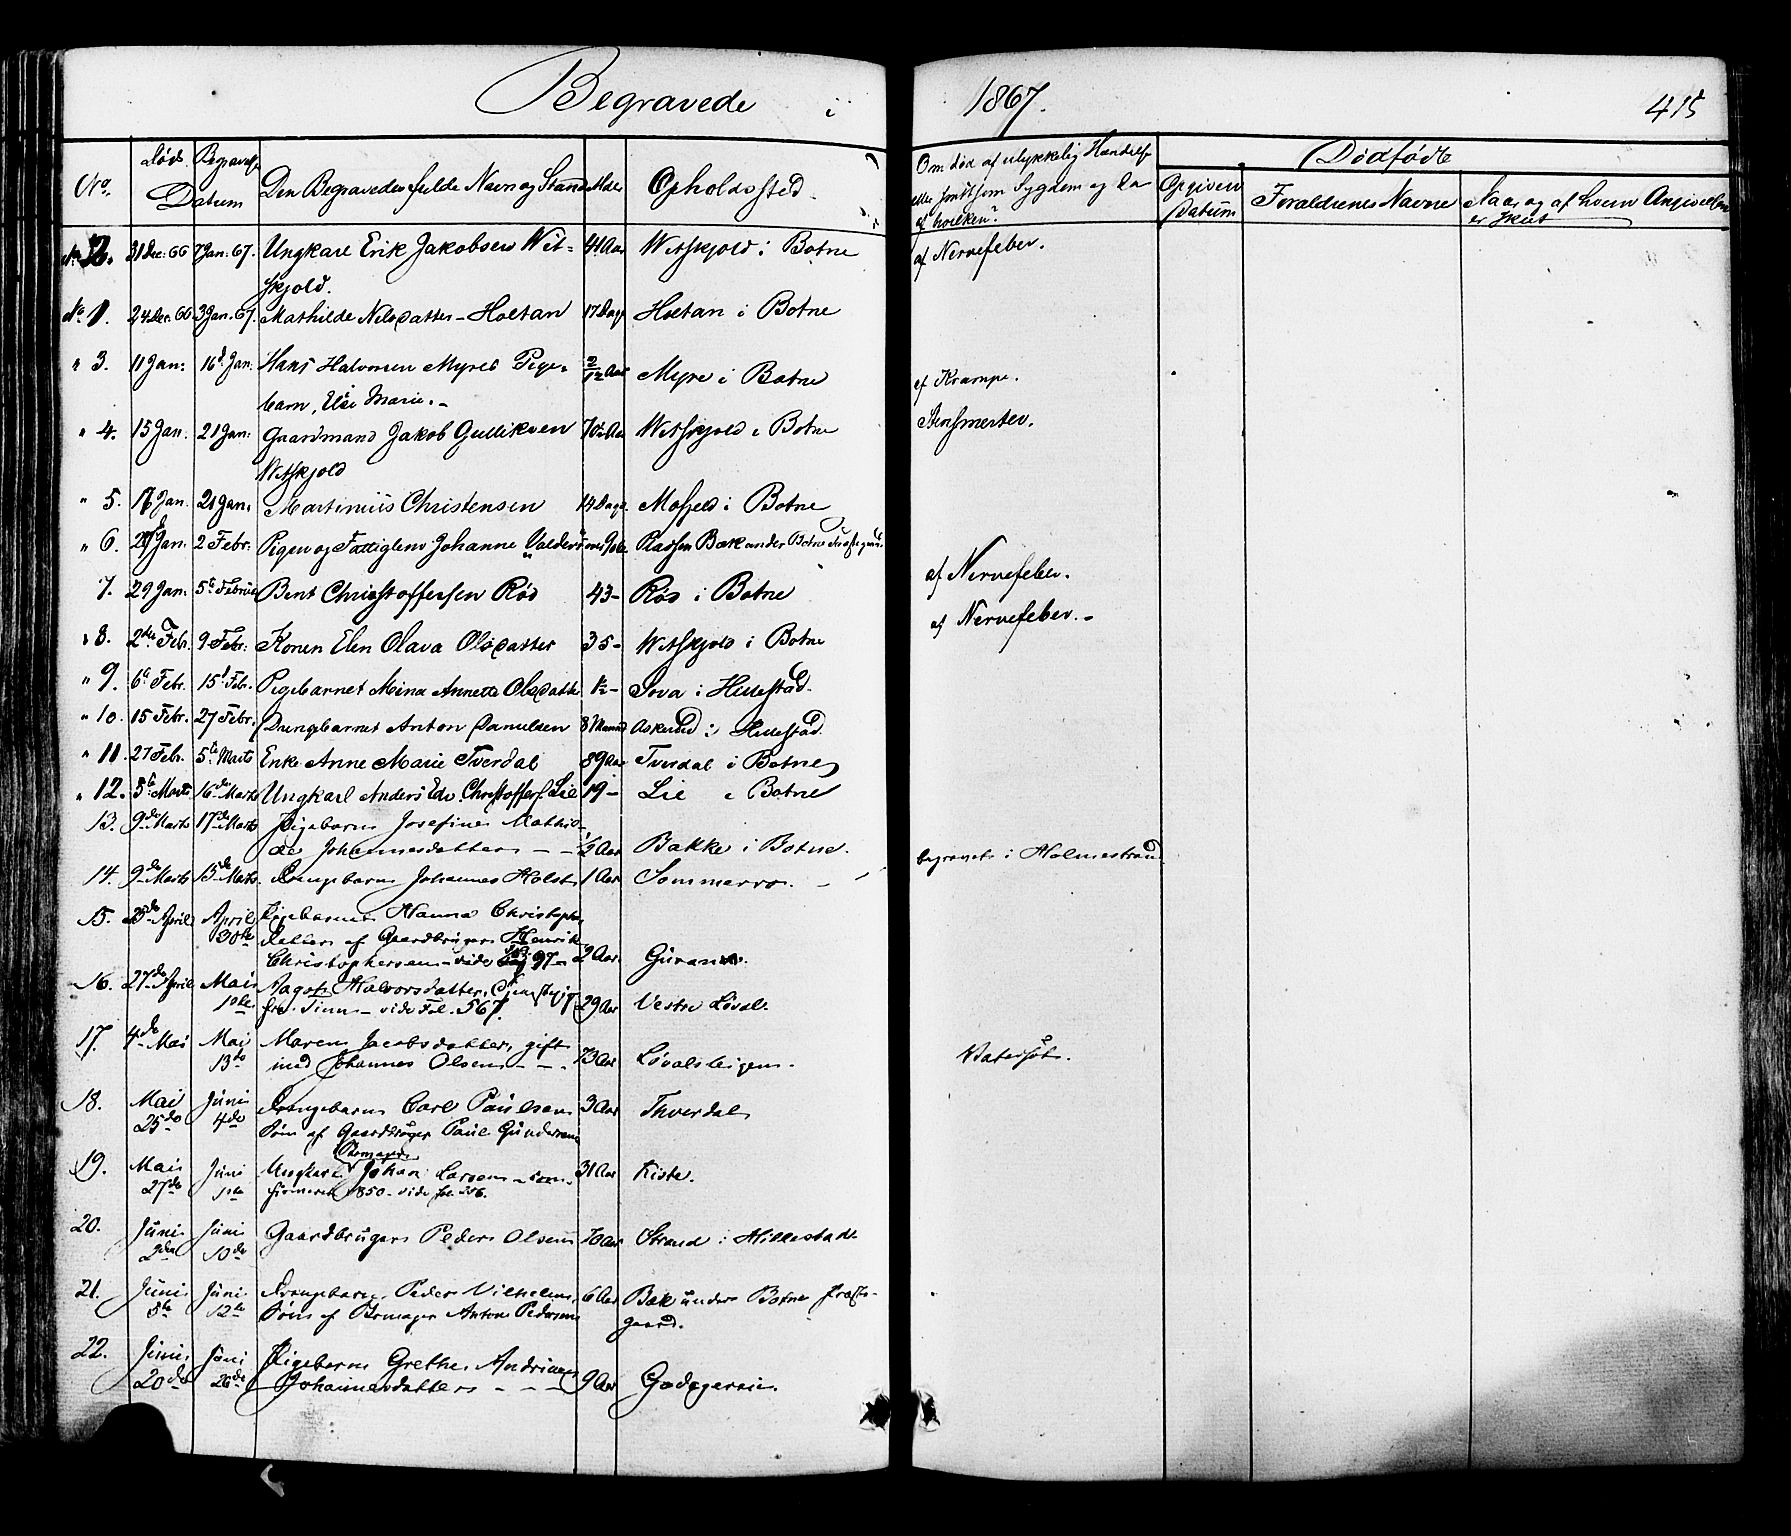 Begravede i 1867. 415
No. Død Begravelse Datum Den Begravedes fulde Navn og Stand Alder Opholdssted. Om død af ulykkelig Hændelse eller forudgaaen Sygdom og da af hvilken? Dødfødte
Opgiven Datum Forældrenes Navne Naar og af hvem Angivelsen er skeet
No 2. 31 Dec. 66 7 Jan. 67. Ungkarl Erik Jakobsen Wit- 41 Aar Witskjold i Botne af Nervefeber.
skjold.
No 1. 24 Dec. 66 3 Jan. 67. Mathilde Nilsdatter - Holtan 17 Dage Holtan i Botne
" 3. 11 Jan: 16d Jan. Hans Halvorsen Myres Pige- 2/12 Aar Myre i Botne af Krampe.
barn, Else Marie. -
" 4. 15 Jan. 21 Jan: Gaardmand Jakob Gulliksen 70 Aar Witskjold i Botne Stensmerter.
Witskjold
" 5. 16 Jan. 21 Jan. Martinius Christensen 14 Dage Mofjeld i Botne
" 6. Jan. 2 Febr. Pigen og Fattiglem Johanne Valders Pladsen Bæk under Botne Præstegaard
7. 29 Jan. 5te Februar Bent Christoffersen Röd 43 - Röd i Botne af Nervefeber.
" 8. 2den Febr. 9 Febr: Konen Elen Olava Olsdatter 35 - Witskjold i Botne af Nervefeber. -
" 9. 6te Febr. 15d Feb. Pigebarnet Mina Annette Olsdatter 1/2 - Sova i Hillestad.
" 10. 15 Febr. 27 Febr. Drengebarnet Anton Danielsen 8 Maaned Askerud i Hillestad.
" 11. 27 Febr. 5te Marts Enke Anne Marie Tverdal 89 Aar Tverdal i Botne
" 12. 5te Marts 16de Marts Ungkarl Anders Edv. Christoffers. Lie 19 - Lie i Botne
13. 9de Marts 17de Marts Pigebarn Josefine Mathil-
de Johannesdatter - - 1/2 Aar Bakke i Botne. begravet i Holmestrand
14. 9de Marts 15de Marts. Drengebarn Johannes Holst 1 Aar Sommerro. -
15. April April Pigebarnet Hanna Christophers
30te datter af Gaardbruger Henrik
Christophersen - vide 97 - 2 Aar Guran.
16. 27de April Mai Aagot Halvorsdatter, Tjenestepige
1ste fra Tinn - vide Fol. 567. 29 Aar Vestre Løval.
17. 4de Mai Mai Maren Jacobsdatter, gift
13de med Johannes Olsen - - . 73 Aar Løvalsteigen. Vatersot.
18. Mai Juni Drengebarn Carl Paulsen 3 Aar Thverdal
25de 4de Søn af Gaardbruger Paul Gundersen
19. Mai Juni Ungkarl Johan Larsen - con- 31 Aar Kiste.
27de 1ste firmeret 1850 - vide fol. 206.
20. Juni Juni Gaardbruger Peder Olsen 70 Aar Strand i Hillestad
2den 10de
21. Juni Juni Drengebarn Peder Vilhelm, 6 Aar Bæk under Botne Præste-
5te 12te Søn af Anton Pedersen gaard.
22. Juni Juni Pigebarn Grethe Andrine
20de 26de Johannesdatter - - - 9 Aar Godageren.